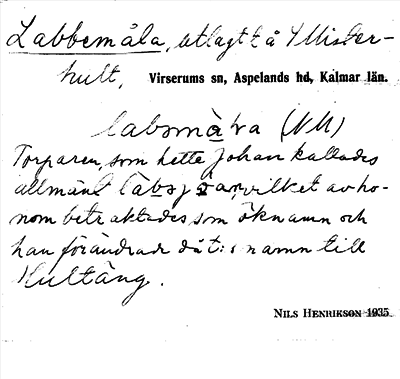 Labbemåla, utlagt å Mister-
hult, Virserums sn, Aspelands hd, Kalmar län.
labsmàra (NM)
Torparen, som hette Johan kallades
allmänt labsjoan, vilket av ho-
nom betraktades som öknamn och
han förändrade det: s namn till
Hultäng.
NILS HENRIKSON 1935.